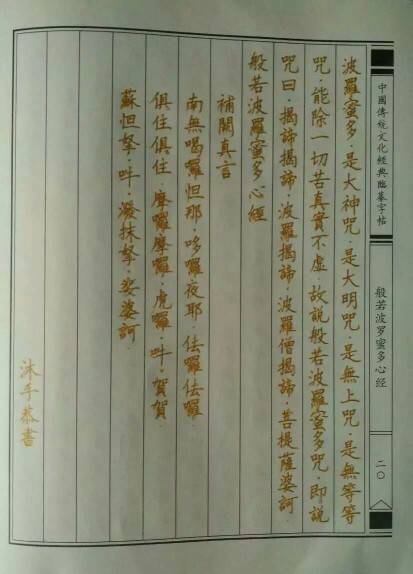 中國傳統文化經典臨摹字帖
般若波罗蜜多心经
二〇
波羅蜜多·是大神咒·是大明咒·是無上咒·是無等等
咒·能除一切苦真實不虛·故說般若波羅蜜多咒·即說
咒曰·揭諦揭諦·波羅揭諦·波羅僧揭諦·菩提薩婆訶·
般若波羅蜜多心經
補闕真言
南無喝囉怛那·哆囉夜耶·佉囉佉囉·
俱住俱住·摩囉摩囉·虎囉·吽·賀賀
蘇怛拏·吽·潑抹拏·娑婆訶·
沐手恭書